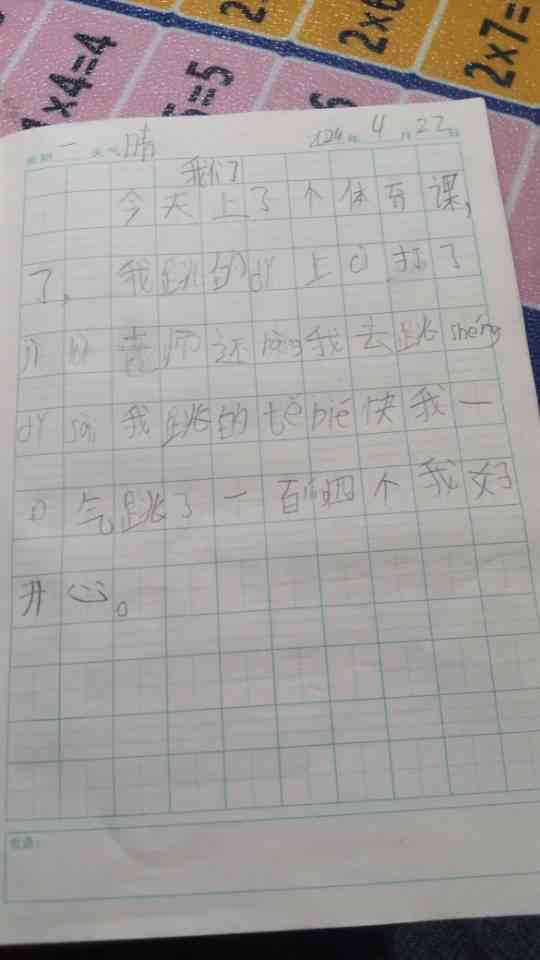 2x6
2x7=
1x4=4
5=5
6
星期 一 天气 晴 2024年 4月22日
我们
今天上了个体育课,
了。我跳的dì上 打了
老师还ràng我去跳shéng
dì 我跳的tèbié快我一
口气跳了一百 四个我好
开心。